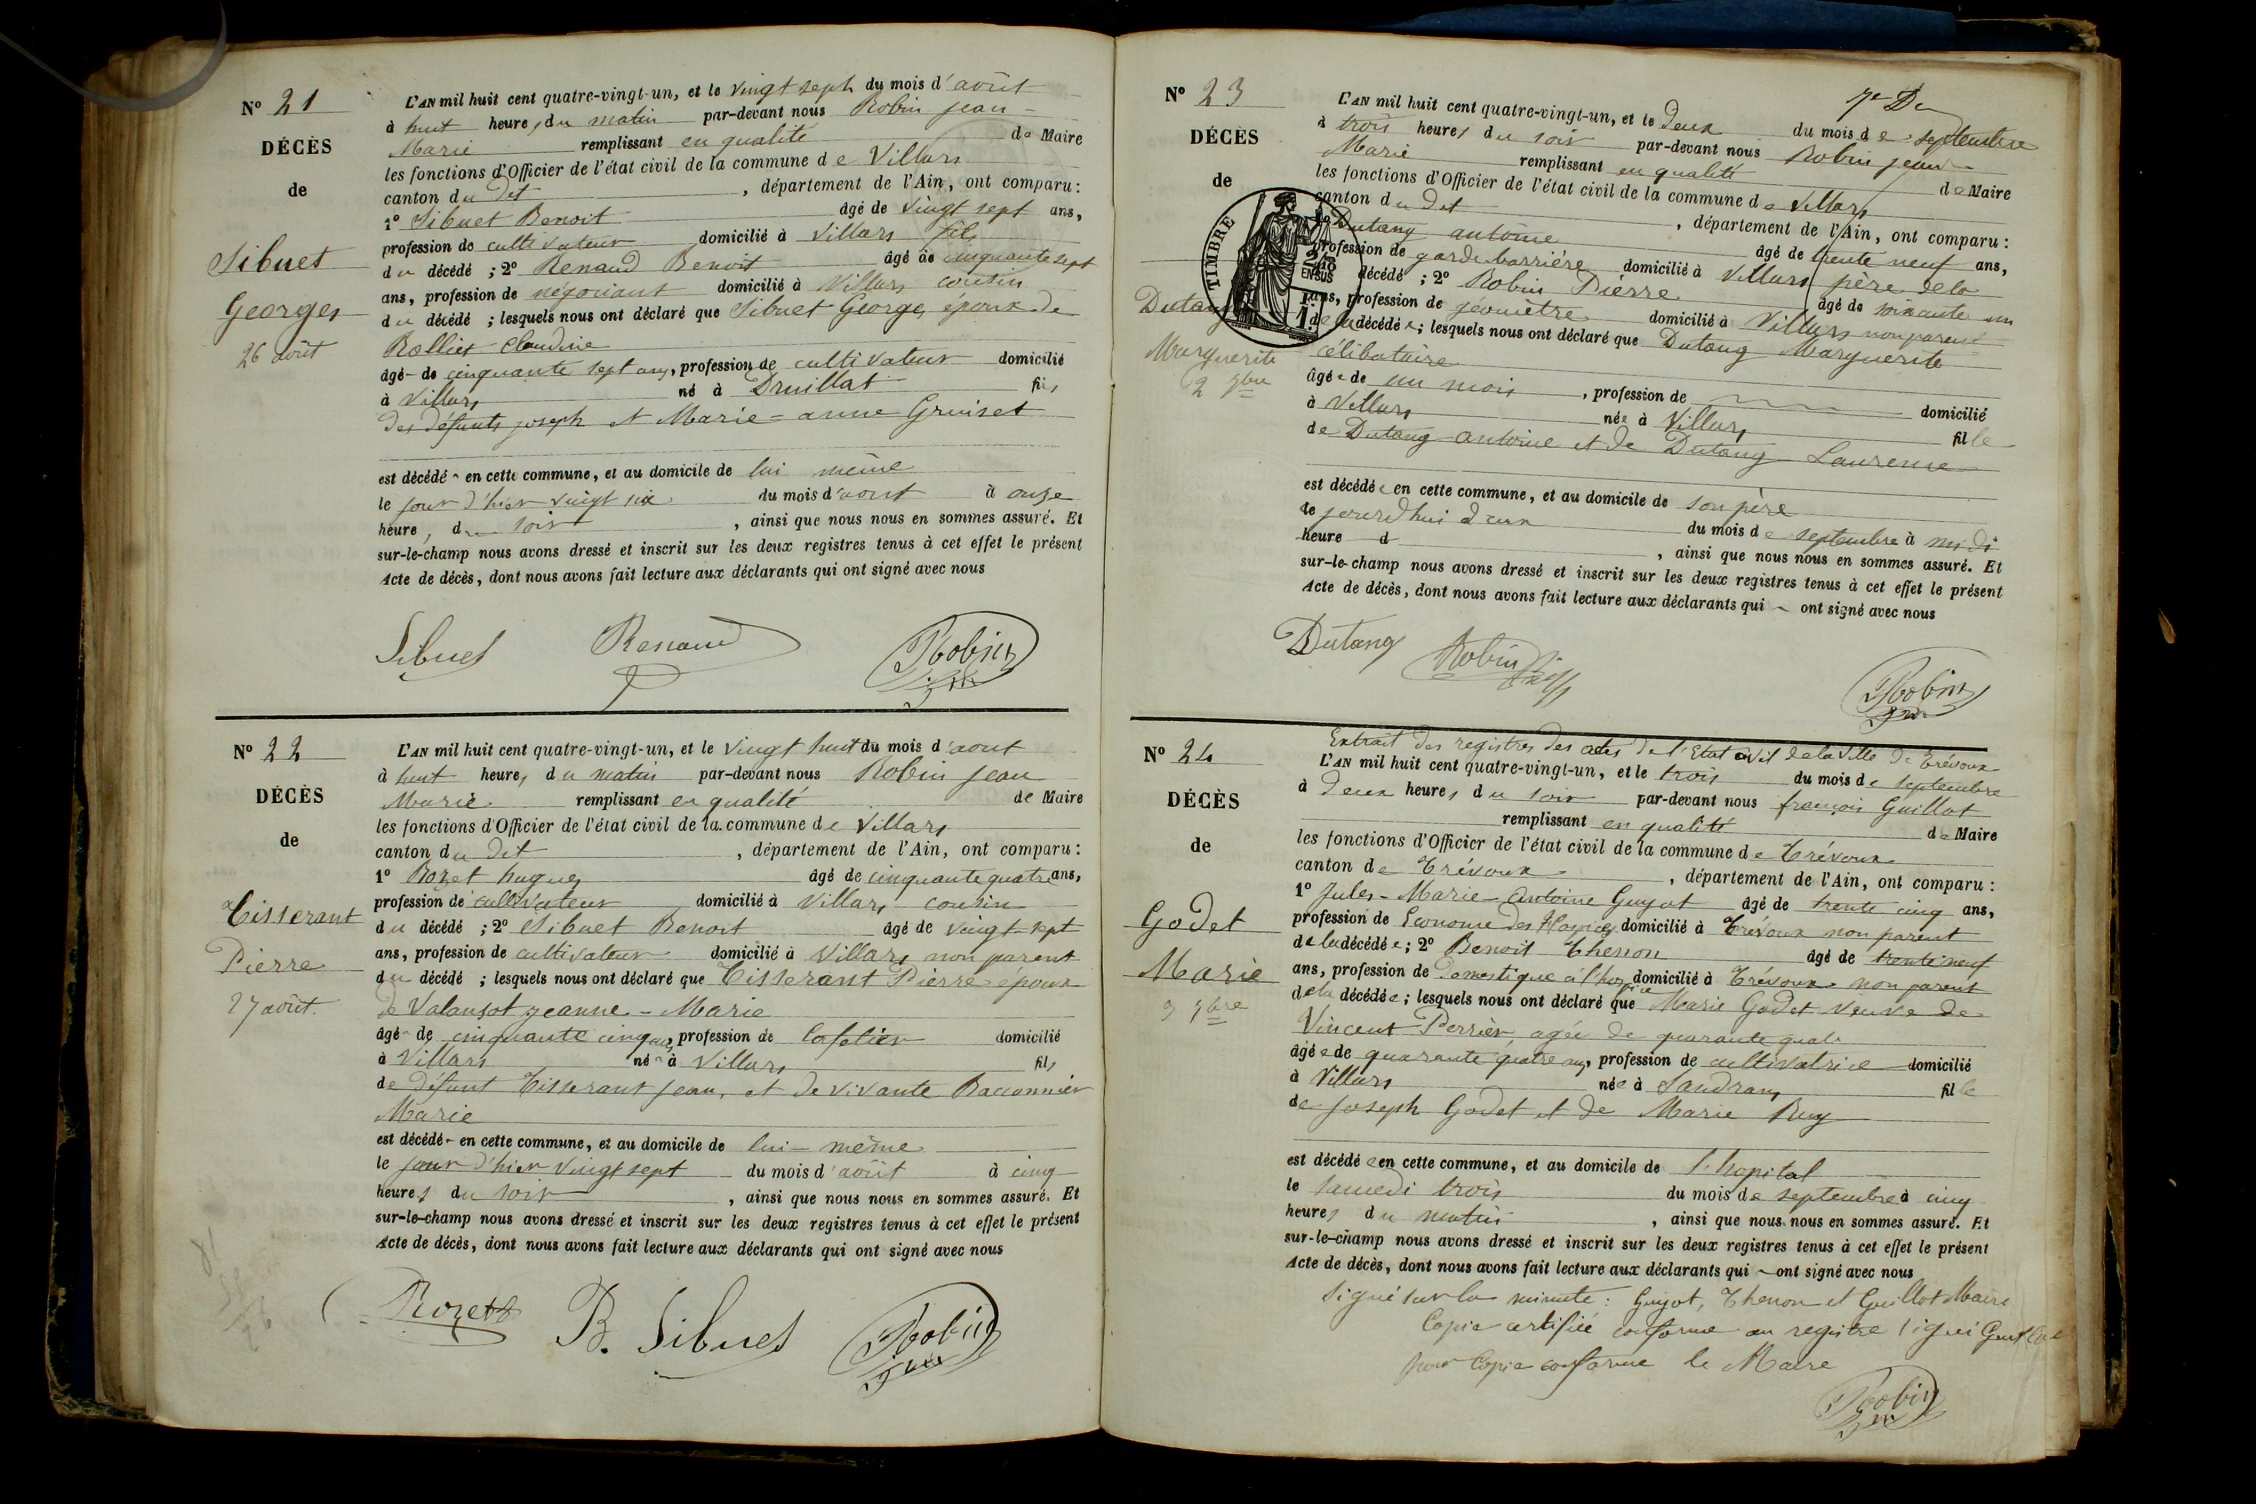 N° 21
DÉCÈS
de
Sibuet
Georges
26 août
L'AN mil huit cent quatre-vingt-un, et le vingt sept du mois d'août
à huit heures du matin par-devant nous Robin Jean
Marie remplissant en qualité de Maire
les fonctions d'Officier de l'état civil de la commune de Villars
canton du dit, département de l'Ain, ont comparu:
1° Sibuet Benoit âgé de vingt sept ans,
profession de cultivateur domicilié à Villars fils
du décédé ; 2° Renaud Benoit âgé de cinquante sept
ans, profession de négociant domicilié à Villars cousin
du décédé ; lesquels nous ont déclaré que Sibuet George, époux de
Rollier Claudine
âgé de cinquante sept ans, profession de cultivateur domicilié
à Villars né à Druillat fils
des défunts joseph et Marie-anne Gruiset
est décédé en cette commune, et au domicile de lui même
le jour d'hier vingt six du mois d'aout à onze
heures du soir, ainsi que nous nous en sommes assuré. Et
sur-le-champ nous avons dressé et inscrit sur les deux registres tenus à cet effet le présent
Acte de décès, dont nous avons fait lecture aux déclarants qui ont signé avec nous
Sibuet Renaud Robin
N° 22
DÉCÈS
de
Tisserant
Pierre
27 août.
L'AN mil huit cent quatre-vingt-un, et le vingt huit du mois d'aout
à huit heures du matin par-devant nous Robin Jean
Marie remplissant en qualité de Maire
les fonctions d'Officier de l'état civil de la commune de Villars
canton du dit, département de l'Ain, ont comparu:
1° Rozet hugues âgé de cinquante quatre ans,
profession de cultivateur domicilié à Villars cousin
du décédé ; 2° Sibuet Benoit âgé de vingt-sept
ans, profession de cultivateur domicilié à Villars non parent
du décédé ; lesquels nous ont déclaré que Tisserant Pierre époux
de Valansot jeanne-Marie
âgé de cinquante cinq ans, profession de Cafetier domicilié
à Villars né à Villars fils
de défunt Tisserant jean, et de vivante Baconnier
Marie
est décédé en cette commune, et au domicile de lui-même
le jour d'hier vingt sept du mois d'août à cinq
heures du soir, ainsi que nous nous en sommes assuré. Et
sur-le-champ nous avons dressé et inscrit sur les deux registres tenus à cet effet le présent
Acte de décès, dont nous avons fait lecture aux déclarants qui ont signé avec nous
Rozet B. Sibuet Robin
N° 23
DÉCÈS
de
Dutang
Marguerite
2 7bre
TIMBRE
L'AN mil huit cent quatre-vingt-un, et le deux du mois de septembre
à trois heures du soir par-devant nous Robin jean
Marie remplissant en qualité de Maire
les fonctions d'Officier de l'état civil de la commune de Villars
canton du dit, département de l'Ain, ont comparu:
1° Dutang antoine âgé de trente neuf ans,
profession de garde barrière domicilié à Villars père de la
décédé ; 2° Robin Pierre âgé de soixante un
ans, profession de géomètre domicilié à Villars non parent
de la décédée ; lesquels nous ont déclaré que Dutang Marguerite
célibataire
âgée de un mois, profession de domicilié
à Villars née à Villars fille
de Dutang antoine et de Dutang Laurence
est décédée en cette commune, et au domicile de son père
le jourd'hui deux du mois de septembre à midi
heure d, ainsi que nous nous en sommes assuré. Et
sur-le-champ nous avons dressé et inscrit sur les deux registres tenus à cet effet le présent
Acte de décès, dont nous avons fait lecture aux déclarants qui ont signé avec nous
Dutang Robin
Robin
N° 24
DÉCÈS
de
Godet
Marie
3 7bre
Extrait des registres des actes de l'Etat civil de la Ville de Trévoux
L'AN mil huit cent quatre-vingt-un, et le trois du mois de septembre
à deux heures du soir par-devant nous françois Guillot
remplissant en qualité de Maire
les fonctions d'Officier de l'état civil de la commune de Trévoux
canton de Trévoux, département de l'Ain, ont comparu:
1° Jules-Marie-Antoine Guyot âgé de trente cinq ans,
profession de Econome des Hospices domicilié à Trévoux non parent
de la décédée ; 2° Benoit Thenon âgé de trente neuf
ans, profession de domestique à l'hospice domicilié à Trévoux non parent
de la décédée ; lesquels nous ont déclaré que Marie Godet veuve de
Vincent Perrier, agée de quarante quatr
âgée de quarante quatre ans, profession de cultivatrice domicilié
à Villars née à Sandrans fille
de joseph Godet et de Marie Ruy
est décédée en cette commune, et au domicile de l'hopital
le samedi trois du mois de septembre à cinq
heures du matin, ainsi que nous nous en sommes assuré. Et
sur-le-champ nous avons dressé et inscrit sur les deux registres tenus à cet effet le présent
Acte de décès, dont nous avons fait lecture aux déclarants qui ont signé avec nous
Signé sur la minute: Guyot, Thenon et Guillot Maire
Copie certifiée conforme au registre signé
pour Copie conforme le Maire
Robin